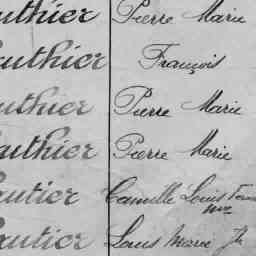 uthier Pierre Marie
uthier François
uthier Pierre Marie
authier Pierre Marie
autier Camille Louis
autier Louis Marie Jh